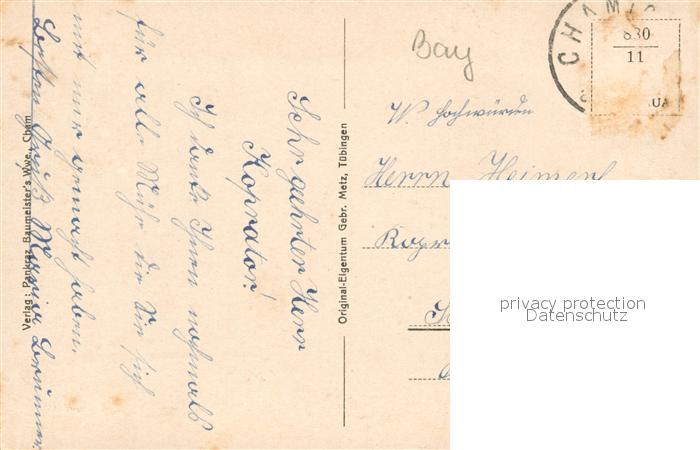 Sehr geehrter Herr
Koprator!
Ich danke Ihnen nochmals
für alle Mühe die Sie sich
mit mir gemacht haben.
Besten Gruß Maria
Verlag: Pankraz Baumeister's Wwe., Cham
Original-Eigentum Gebr. Metz, Tübingen
Bay
CHAM
830
11
W. Hochwürden
Herrn
privacy protection
Datenschutz